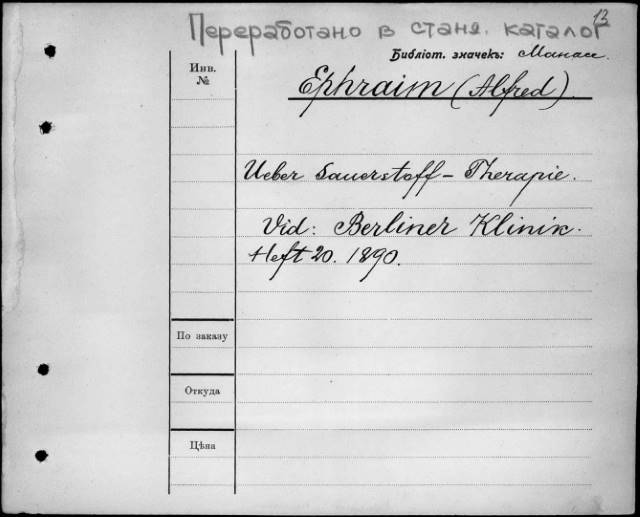 13
Переработано в станд. каталог
Библіот. значекъ: Манас.
Инв.
№
Ephraim (Alfred).
Ueber Sauerstoff-Therapie.
Vid: Berliner Klinik.
Heft 20. 1890.
По заказу
Откуда
Цѣна